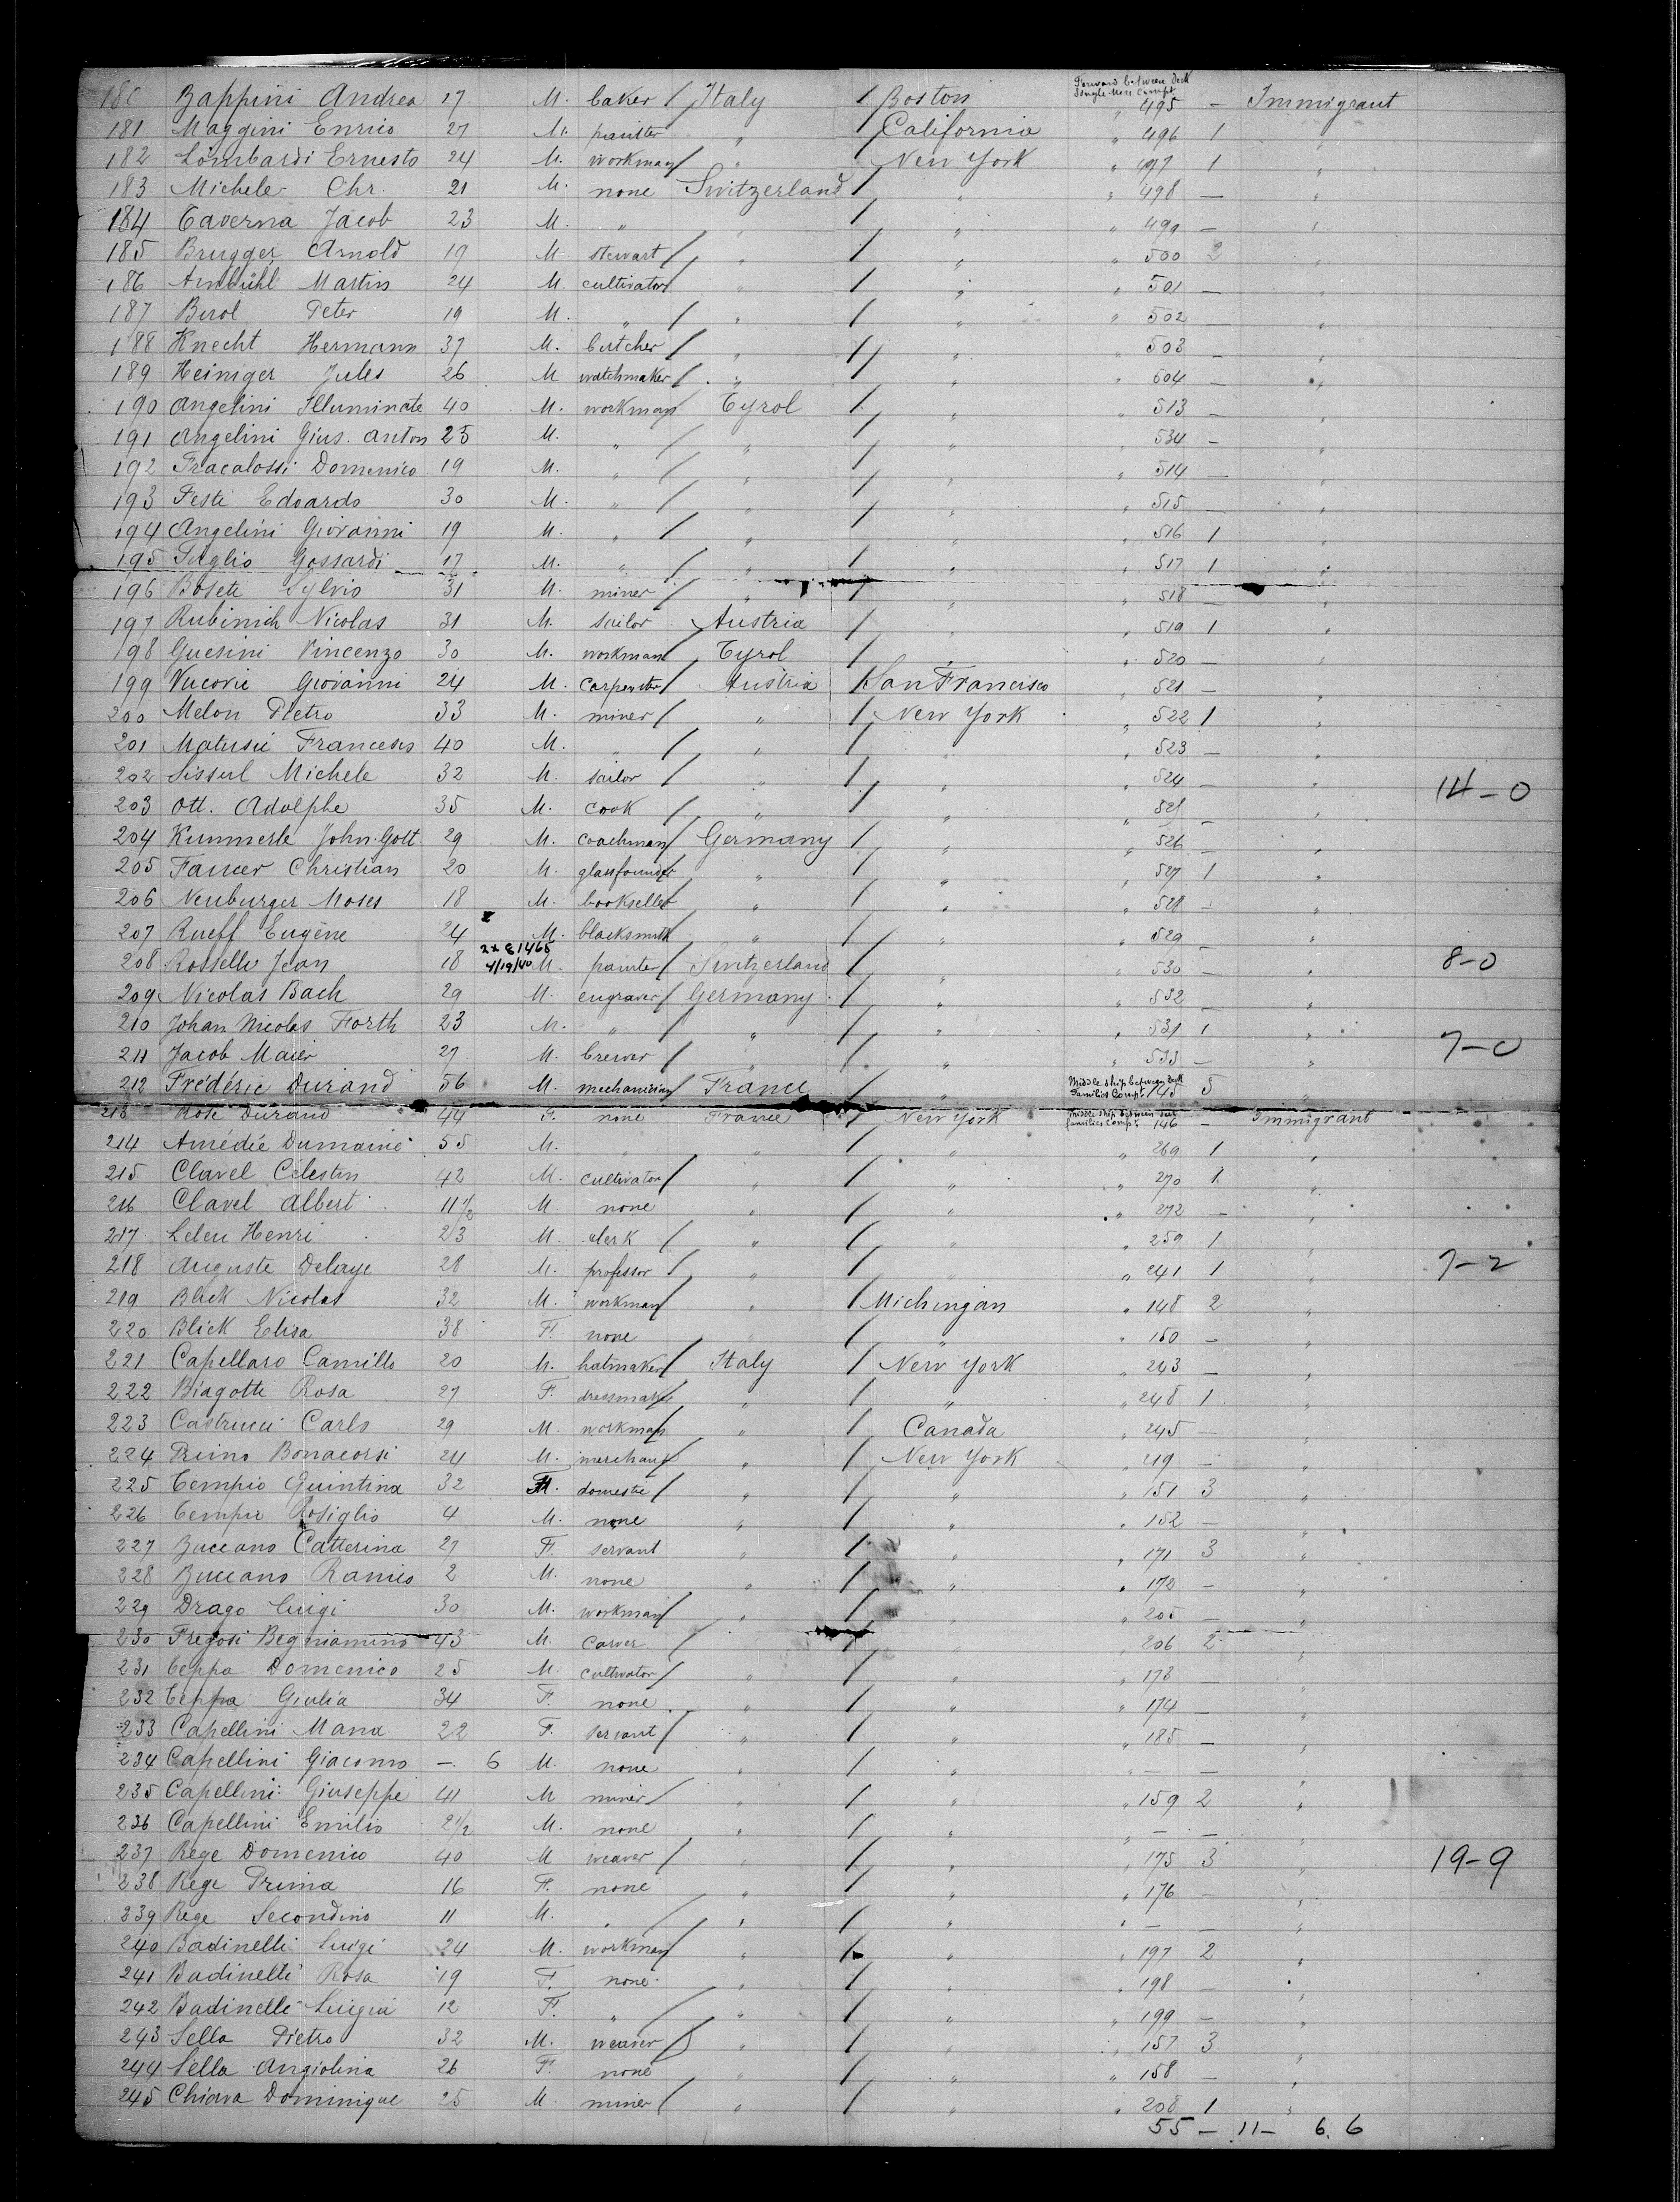 Forward between deck
Single Men Compt
180 Bappini Andrea 17 M. baker / Italy / Boston 495 — Immigrant
181 Maggini Enrico 27 M. painter " / California " 496 1 "
182 Lombardi Ernesto 24 M. workman / " / New York " 497 1 "
183 Michele Chr. 21 M. none Switzerland / " " 498 — "
184 Caverna Jacob 23 M. " " / " " 499 — "
185 Brugger Arnold 19 M. stewart / " / " " 500 2 "
186 Ambühl Martin 24 M. cultivator / " / " " 501 — "
187 Berol Peter 19 M. " / " / " " 502 — "
188 Knecht Hermann 37 M. butcher / " / " " 503 — "
189 Heiniger Jules 26 M watchmaker / " / " " 504 — "
190 Angelini Illuminate 40 M. workman / Tyrol / " " 513 — "
191 Angelini Gius. Anton 25 M. " / " / " " 534 — "
192 Fracalossi Domenico 19 M. " / " / " " 514 — "
193 Feste Edoardo 30 M. " / " / " " 515 — "
194 Angelini Giovanni 19 M. " / " / " " 516 1 "
195 Gossardi 17 M. " / " / " " 517 1 "
196 Bosete Sylvio 31 M. miner / " / " " 518 — "
197 Rubinich Nicolas 31 M. sailor Austria / " " 519 1 "
198 Guesini Vincenzo 30 M. workman / Tyrol / " " 520 — "
199 Vucovic Giovanni 24 M. carpenter / Austria / San Francisco " 521 — "
200 Melon Pietro 33 M. miner / " / New York " 522 1 "
201 Matusic Francesco 40 M. " / " / " " 523 — "
202 Sissul Michele 32 M. sailor / " / " " 524 — " 14–0
203 Ott. Adolphe 35 M. cook / " / " " — "
204 Kummerle John. Gott. 29 M. coachman / Germany / " " 526 — "
205 Christian 20 M. glassfounder " / " " 527 1 "
206 Neuburger Moses 18 M. bookseller " / " " 528 — "
207 Rueff Eugène 24 M. blacksmith " / " " 529 — "
2x 81465
208 Rosselli Jean 18 4/19/40 M. painter / Switzerland / " " 530 — " 8–0
209 Nicolas Bach 29 M. engraver / Germany / " " 532 — "
210 Johan Nicolas Forth 23 M. " " / " " 531 1 "
211 Jacob Maier 27 M. brewer / " / " " 533 — " 7–0
Middle ship between deck
212 Frédéric Durand 56 M. mechanician / France / " Families Compt 145 5 "
Middle ship between deck
213 Rose Durand 44 F. none France / New York families Compt. 146 — Immigrant
214 Amédée Dumaine 55 M. " " / " " 269 1 "
215 Clavel Célestin 42 M. cultivator / " / " " 270 1 "
216 Clavel Albert 11 1/2 M. none " / " " 272 — "
217 Leleu Henri 23 M. clerk / " / " " 259 1 "
218 Auguste Delaye 28 M. professor / " / " " 241 1 " 7–2
219 Blick Nicolas 32 M. workman / " / Michingan " 148 2 "
220 Blick Elisa 38 F. none " / " " 150 — "
221 Capellaro Camillo 20 M. hatmaker / Italy / New York " 243 — "
222 Biagotti Rosa 27 F. dressmaker " / " " 248 1 "
223 Castrucci Carlo 29 M. workman " / Canada " 245 — "
224 Primo Bonacorsi 24 M. merchant / " / New York " 49 — "
225 Tempio Quintina 32 F. domestic / " / " " 151 3 "
226 4 M. none " / " " 152 — "
227 Zuccano Catterina 27 F. servant " / " " 171 3 "
228 Zuccano 2 M. none " / " " 172 — "
229 Drago Luigi 30 M. workman / " / " " 205 — "
230 Fregosi Begniamino 43 M. carver / " " 206 2 "
231 Ceppa Domenico 25 M. cultivator / " / " " 173 — "
232 Ceppa Giulia 34 F. none " / " " 174 — "
233 Capellini Maria 22 F. servant / " / " " 185 — "
234 Capellini Giacomo — 6 M. none " / " " — — "
235 Capellini Giuseppe 41 M miner / " / " " 159 2 "
236 Capellini Emilio 2 1/2 M. none " / " " — — "
237 Rege Domenico 40 M weaver / " / " " 175 3 " 19–9
238 Rege Prima 16 F. none " / " " 176 — "
239 Rege Secondino 11 M. " / " / " " — — "
240 Badinelli Luigi 24 M. workman / " / " " 197 2 "
241 Badinelli Rosa 19 F. none " / " " 198 — "
242 Badinelli Luigia 12 F. " / " / " " 199 — "
243 Sella Pietro 32 M. weaver / " / " " 157 3 "
244 Sella Angiolina 26 F. none " / " " 158 — "
245 Chiara Dominique 25 M miner / " / " " 208 1 "
55 — 11 — 6. 6